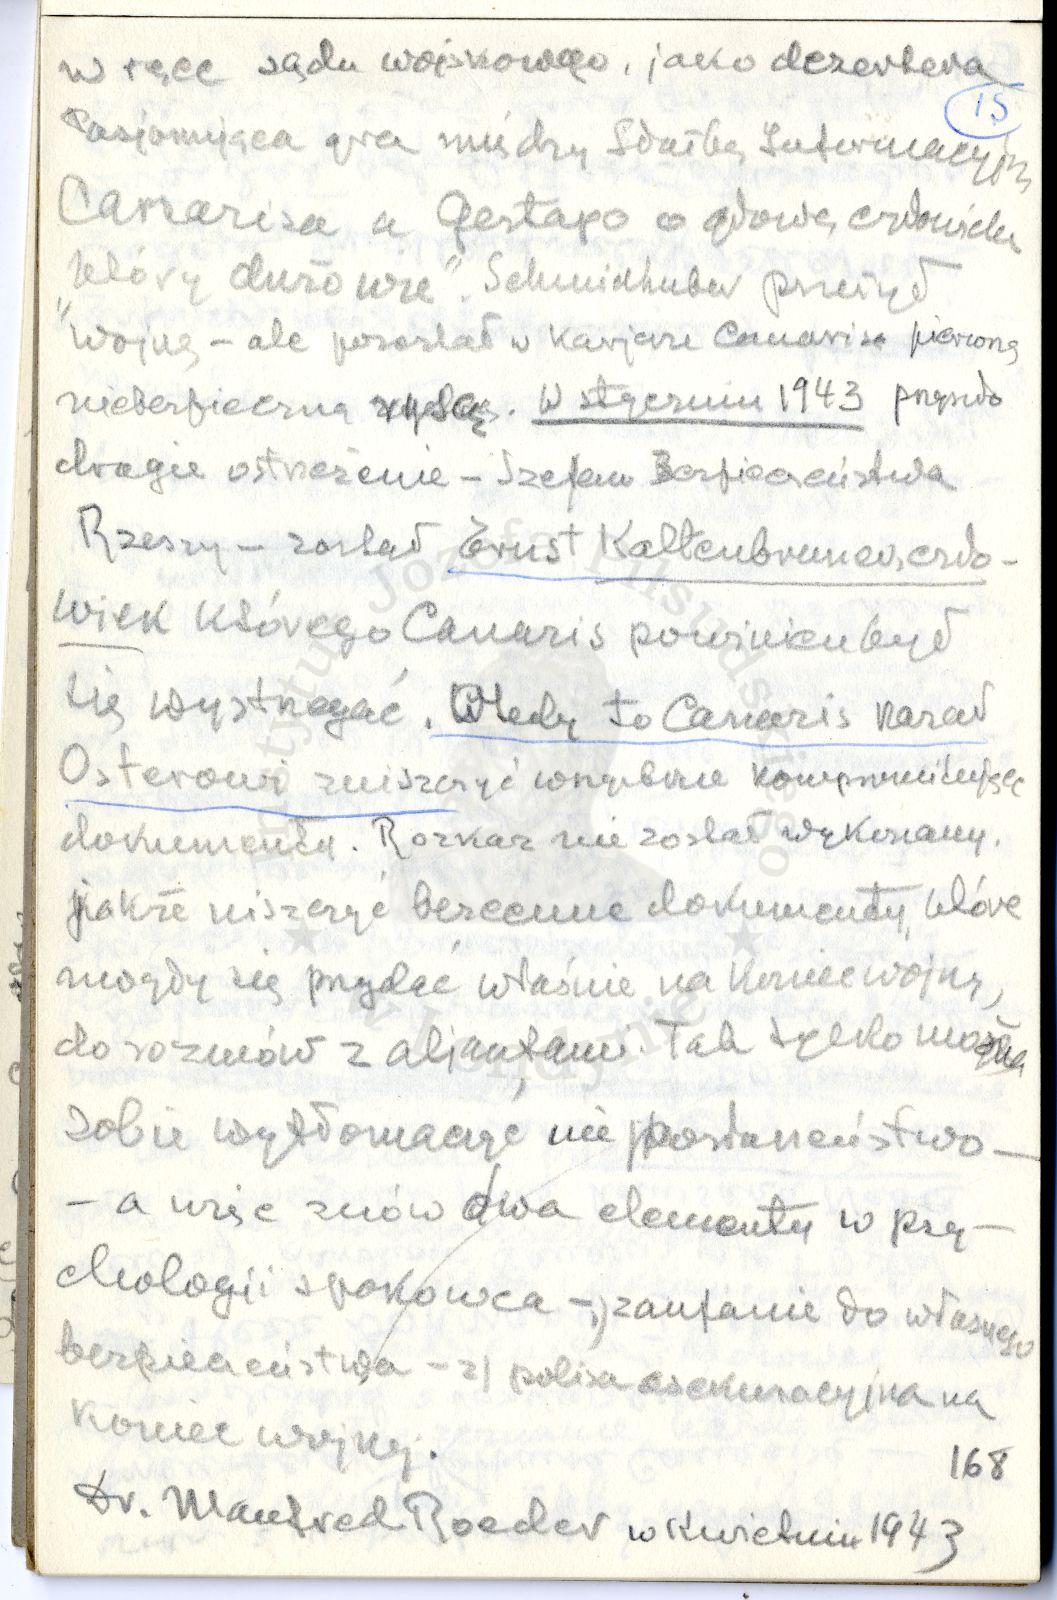 w ręce sądu wojskowego, jako dezertera
15
Pasjonująca gra między Służbą Informacyjną
Canarisa a Gestapo o głowę człowieka
"który dużo wie". Schmidhuber przeżył
wojnę – ale pozostał w karjerze Canarisa pierwszą
niebezpieczną rysą. W styczniu 1943 przyszło
drugie ostrzeżenie – Szefem Bezpieczeństwa
Rzeszy – został Ernst Kaltenbrunner, czło-
wiek którego Canaris powinien był
się wystrzegać. Wtedy to Canaris kazał
Osterowi zniszczyć wszystkie kompromitujące
dokumenty. Rozkaz nie został wykonany.
jakże niszczyć bezcenne dokumenty, które
mogły się przydać właśnie na koniec wojny,
do rozmów z aljantami. Tak tylko można
sobie wytłomaczyć nieposłuszeństwo –
– a więc znów dwa elementy w psy-
chologii szpiegowca – 1) zaufanie do własnego
bezpieczeństwa – 2) polisa asekuracyjna na
koniec wojny.
168
Dr. Manfred Roeder w kwietniu 1943
Instytut Józefa Piłsudskiego
w Londynie